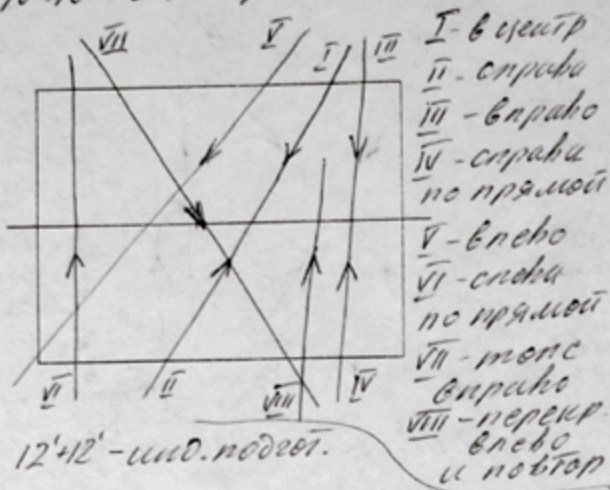 VII
V
I
III
I - в центр
II - справа
III - вправо
IV - справа
по прямой
V - влево
VI - слева
по прямой
VII - топс
вправо
VIII - перекр.
влево
и повтор
VI
II
VIII
IV
12'+12' - инд. подгот.